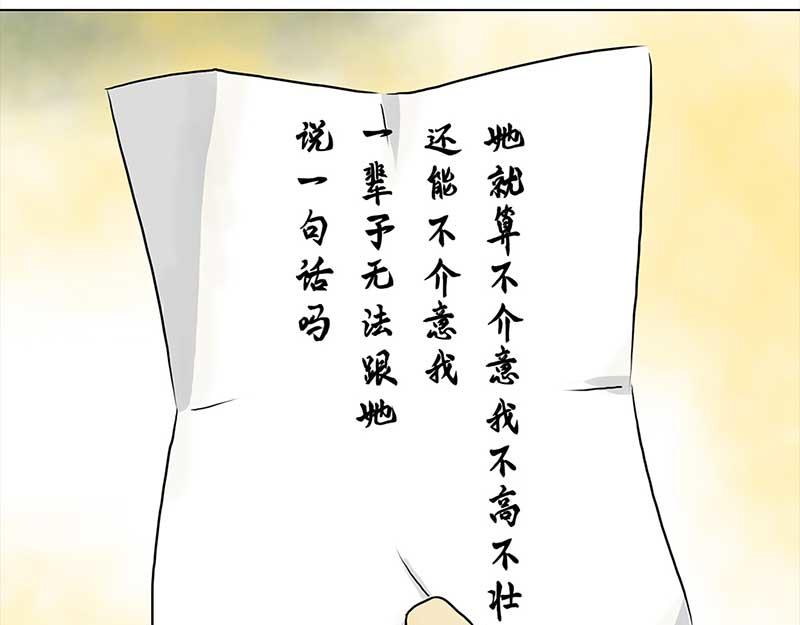 她就算不介意我不高不壮
还能不介意我
一辈子无法跟她
说一句话吗